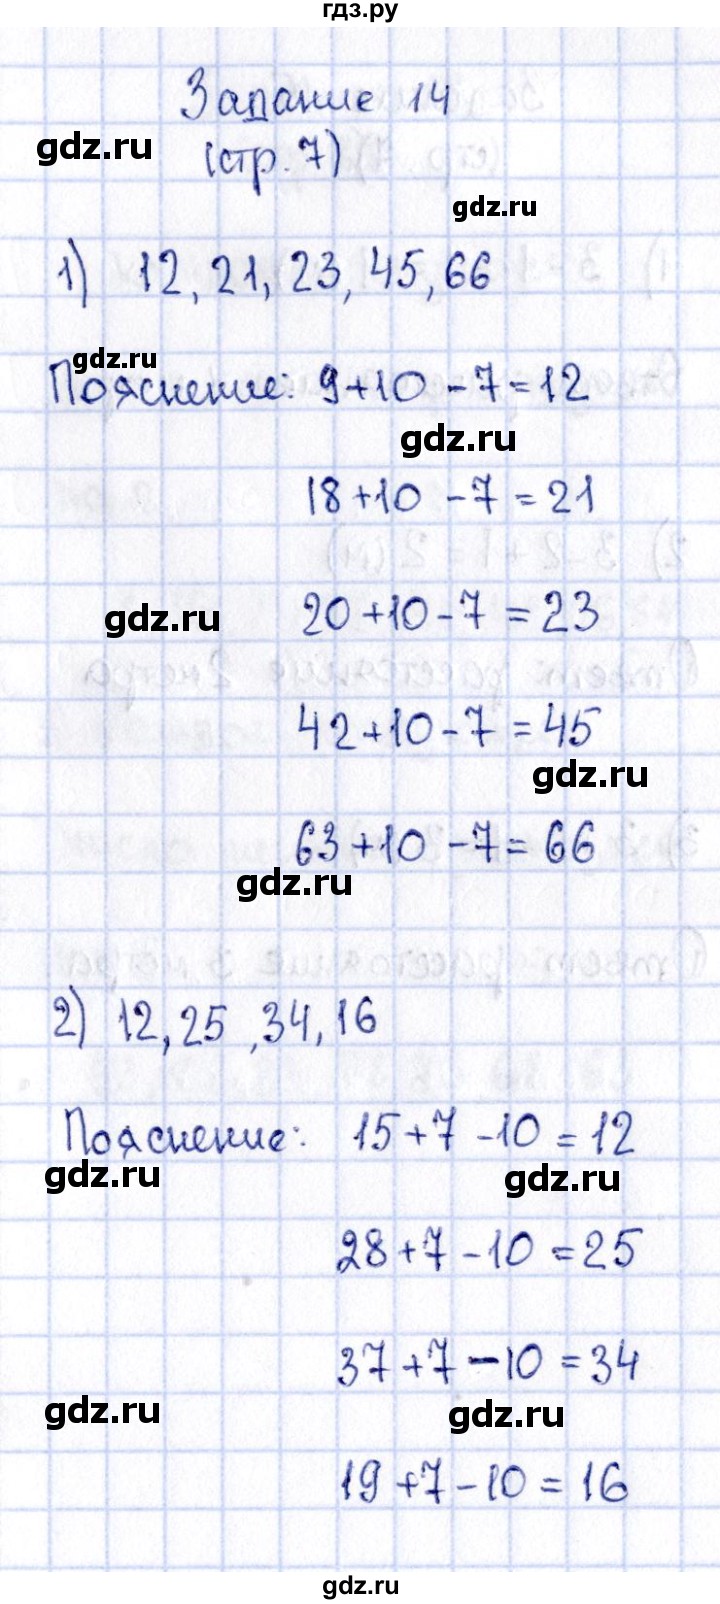 гдз.ру
Задание 14
gdz.ru
(стр. 7)
gdz.ru
1) 12, 21, 23, 45, 66
gdz.ru
Пояснение: 9+10-7=12
gdz.ru
18+10-7=21
gdz.ru
20+10-7=23
42+10-7=45
gdz.ru
63+10-7=66
gdz.ru
2) 12, 25, 34, 16
Пояснение: 15+7-10=12
gdz.ru
gdz.ru
28+7-10=25
37+7-10=34
gdz.ru
gdz.ru
19+7-10=16
gdz.ru